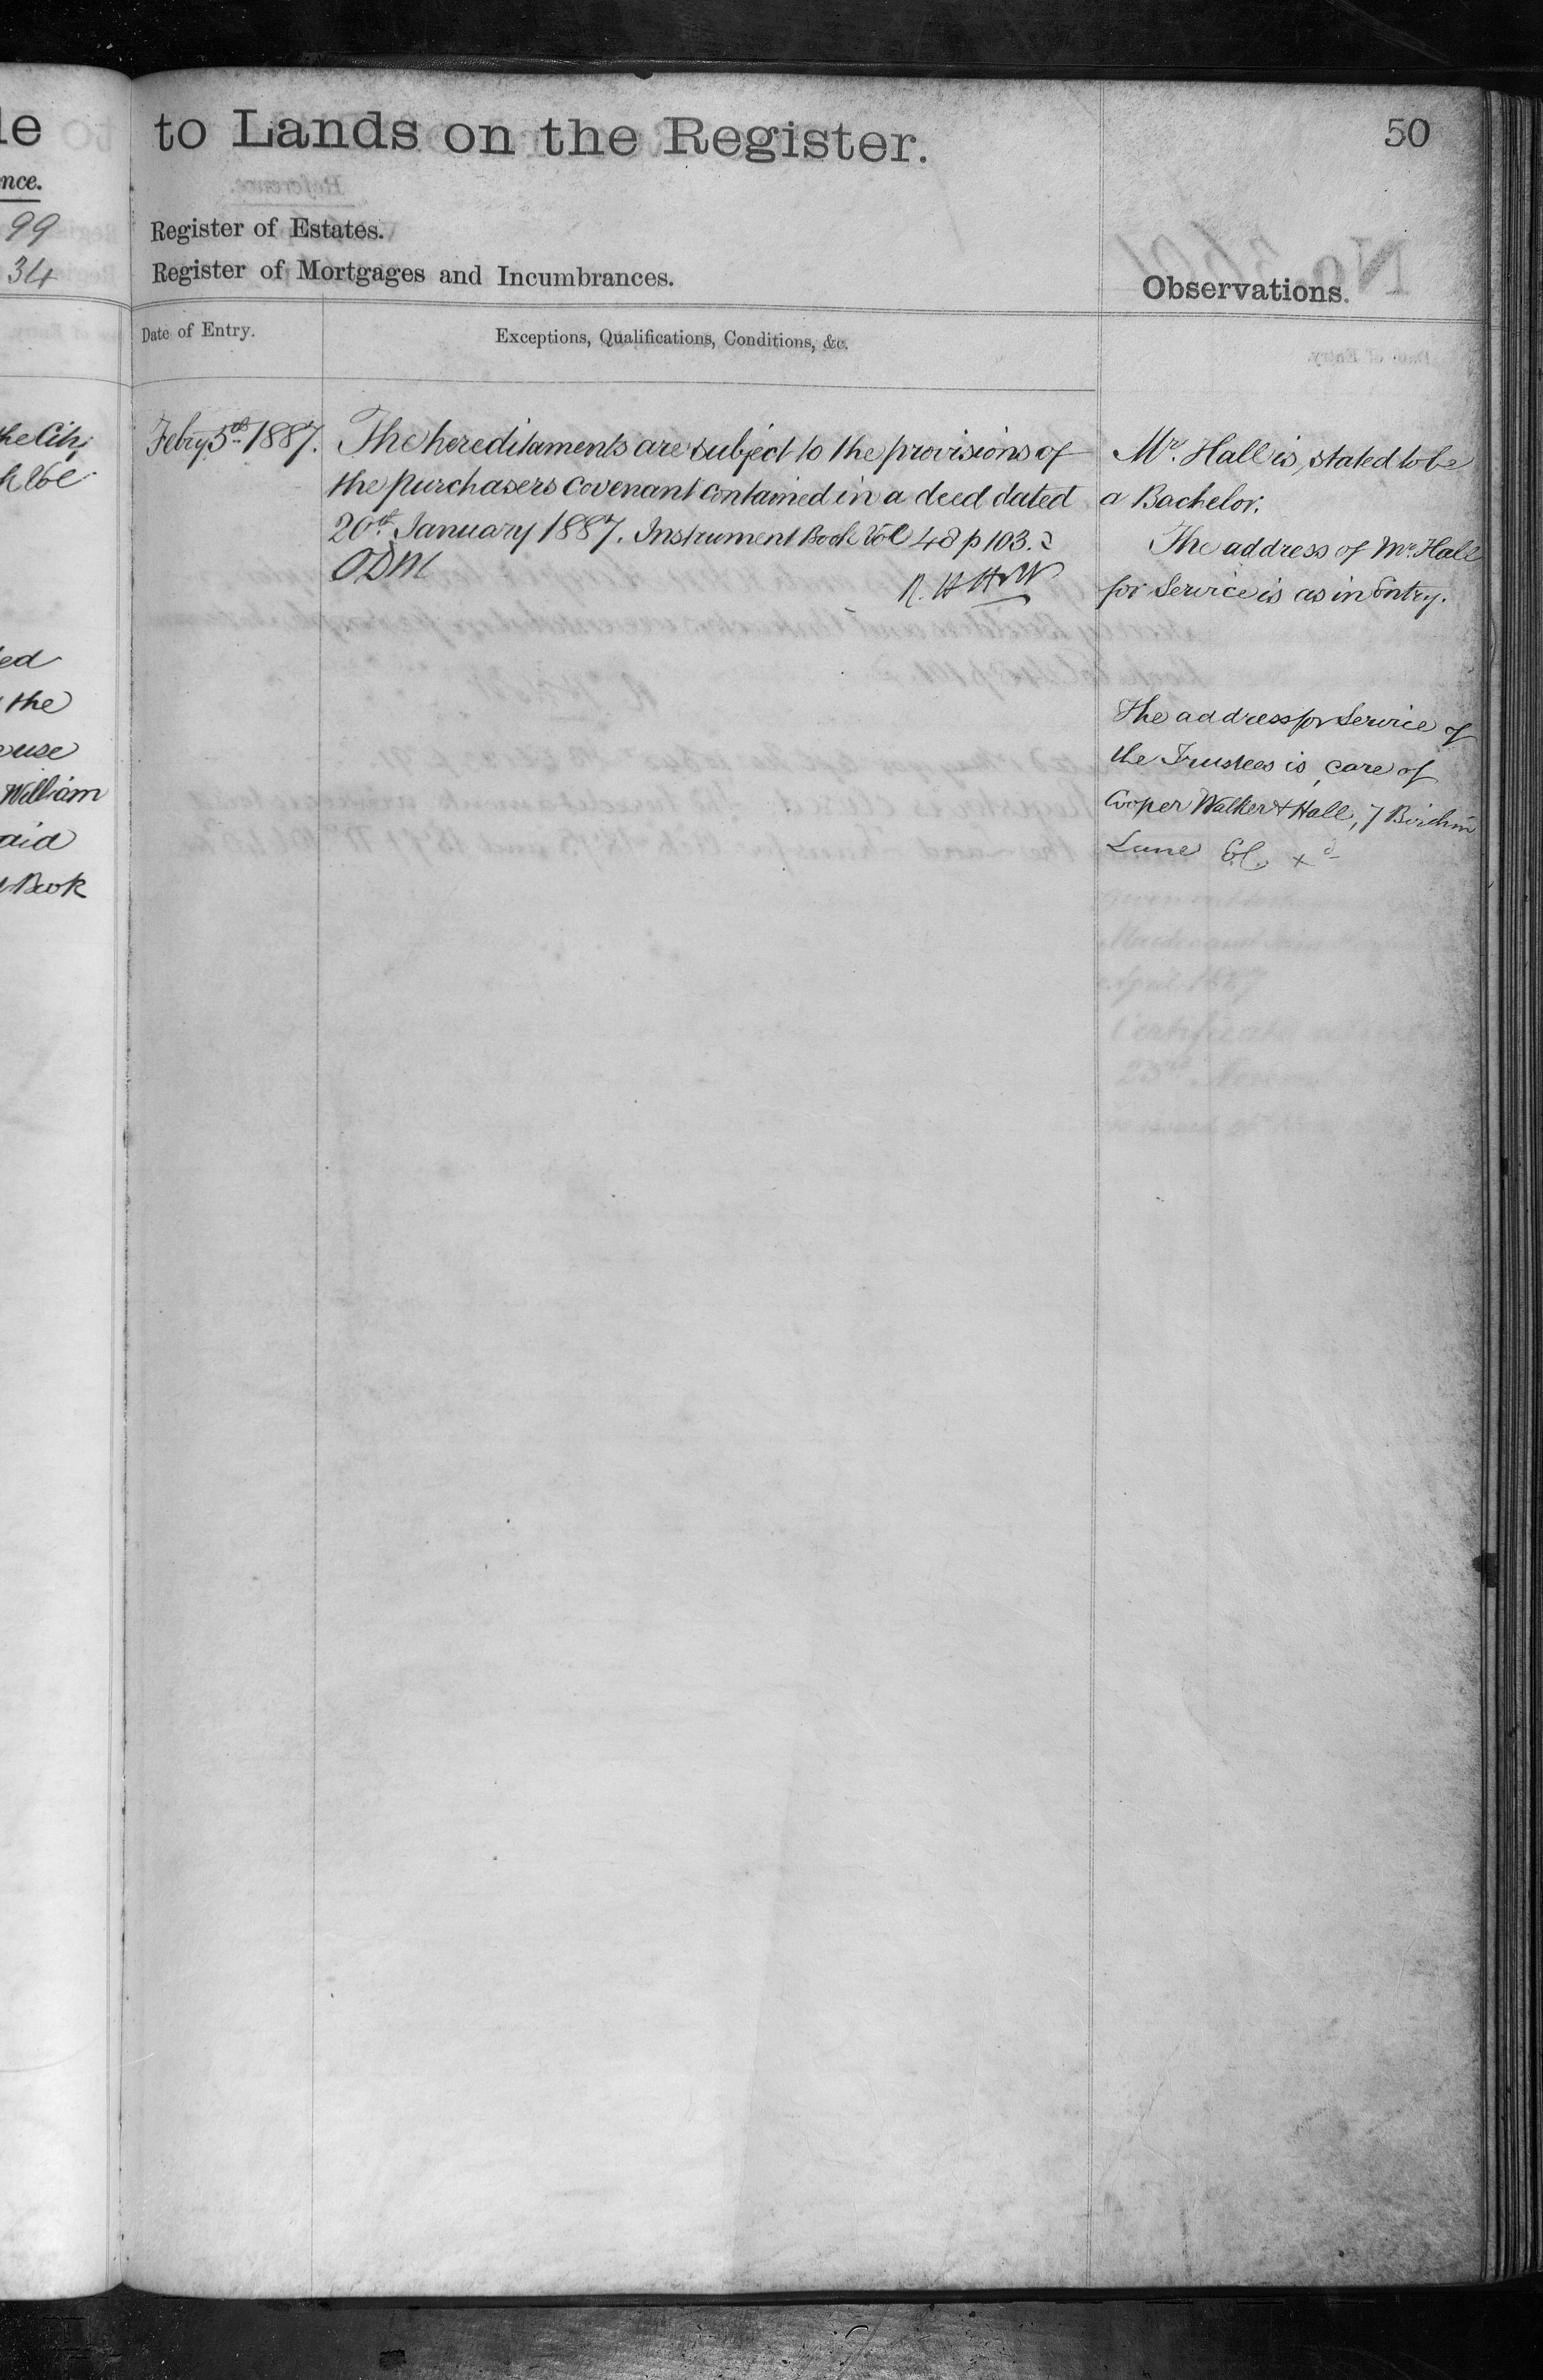 le
to Lands on the Register.
50
nce.
99
34
Register of Estates.
Register of Mortgages and Incumbrances.
Observations.
Date of Entry.
Exceptions, Qualifications, Conditions, &c.
the City
Febry 5th 1887.
The hereditaments are subject to the provisions of
the purchasers covenant contained in a deed dated
20th January 1887. Instrument Book Vol 48 p 103.
ODM
Mr. Hall is stated to be
a Bachelor.
The address of Mr. Hall
for Service is as in Entry.
ed
the
ouse
William
aid
Book
The address for Service of
the Trustees is care of
Cooper Walker & Hall, 7 Birchin
Lane EC.